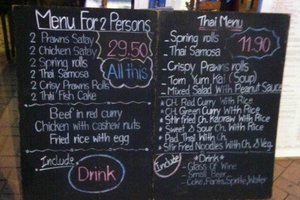 Menu For 2 Persons
2 Prawns Satay
2 Chicken Satay
2 Spring rolls
2 Thai Samosa
2 Crisy Prawns Rolls
2 Thai Fish Cake
29.50
All this
Beef in red curry
Chicken with cashew nuts
Fried rice with egg
Include
Drink
Thai Menu
- Spring rolls
- Thai Samosa
11.90
- Crispy Prawns rolls
- Tom Yum Kai (Soup)
- Mixed Salad with Peanut Sauce
* CH. Red Curry With Rice
* CH. Green Curry With Rice
* Stir fried CH. Kapraw With Rice
* Sweet & Sour CH. With Rice
* Pad Thai With CH.
* Stir Fried Noodles With CH. & Veg.
Include
*Drink*
- Glass Of Wine
- Small Beer
- Coke, Fanta, Sprite, Water